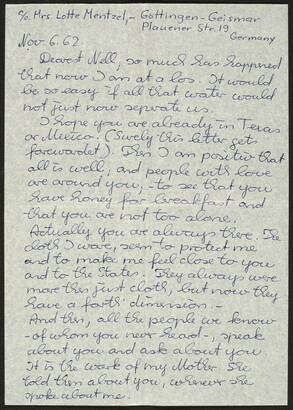 c/o. Mrs. Lotte Mentzel, - Göttingen-Geismar
Plauener Str. 19
Germany
Nov. 6. 62
Dearest Nell, so much has happened
that now I am at a loss. It would
be so easy if all that water would
not just now separate us.
I hope you are already in Texas
or Mexico. (Surely this letter gets
forwarded). Then I am positive that
all is well, and people with love
are around you, - to see that you
have honey for breakfast and
that you are not too alone.
Actually you are always there. The
cloth I wove, seem to protect me
and to make me feel close to you
and to the States. They always were
more than just cloth, but now they
have a forth dimension. -
And then, all the people we know
- of whom you never heard -, speak
about you and ask about you
It is the work of my Mother. She
told them about you, whenever she
spoke about me.